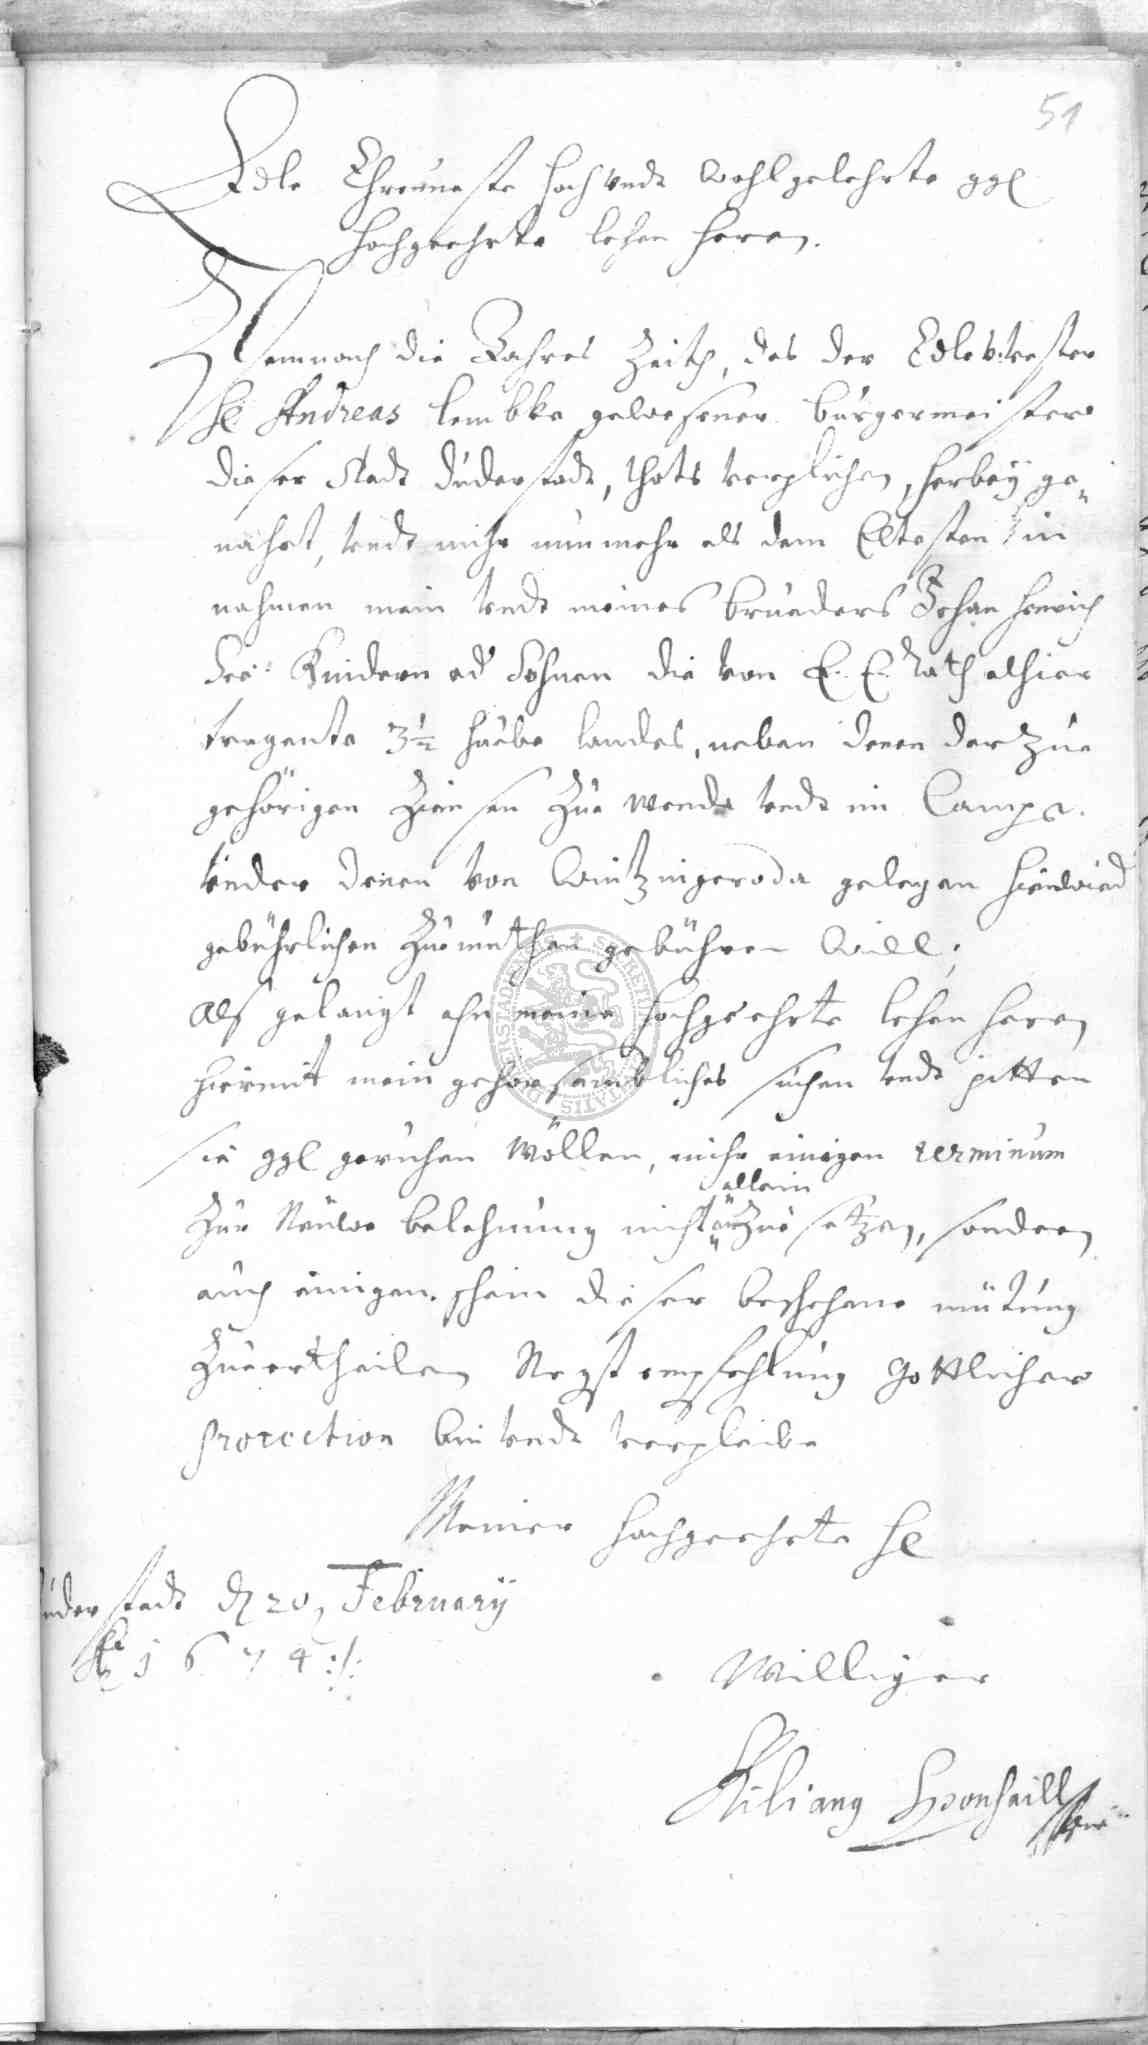 51
Edle Ehrenveste hoch undt wohlgelehrte ggl
hochgeehrte lehen herren.
Demnach die Jahres Zeith, das der Edle vester
H. Andreas lembke gewesener bürgermeister
dieser Stadt Duderstadt, thots verplichen, herbey ge-
nahet, undt mihr nunmehr als dem Eltesten in
nahmen mein undt meines brueders Johan Henrich
See: Kindern Söhnen die von E. E. Rath alhier
tragente 3½ huebe landes, neben denen darzue
gehörigen Zinsen Zue wende undt im Camp
under denen von Wintzingeroda gelegen
gebührlichen Zuemuthen gebühren will,
Als gelangt ahn meine hochgeehrte lehen herren
hiermit mein gehorsambliches suchen undt pitten
sie ggl geruhen wöllen, mihr einigen terminum
allein
Zur Neuwe belehnung nicht anZuesetzen, sondern
auch einigen schein dieser beschehene mütung
Zuertheilen Negst empfehlung Göttlicher
protection bin undt verpleibe
Meiner hochgeehrte H
uderstadt d 20 February
Ao 1674
Williger
Kiliang Sponsaill